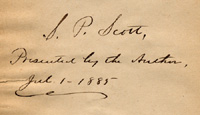 S. P. Scott,
Presented by the Author,
Jul. 1 - 1885